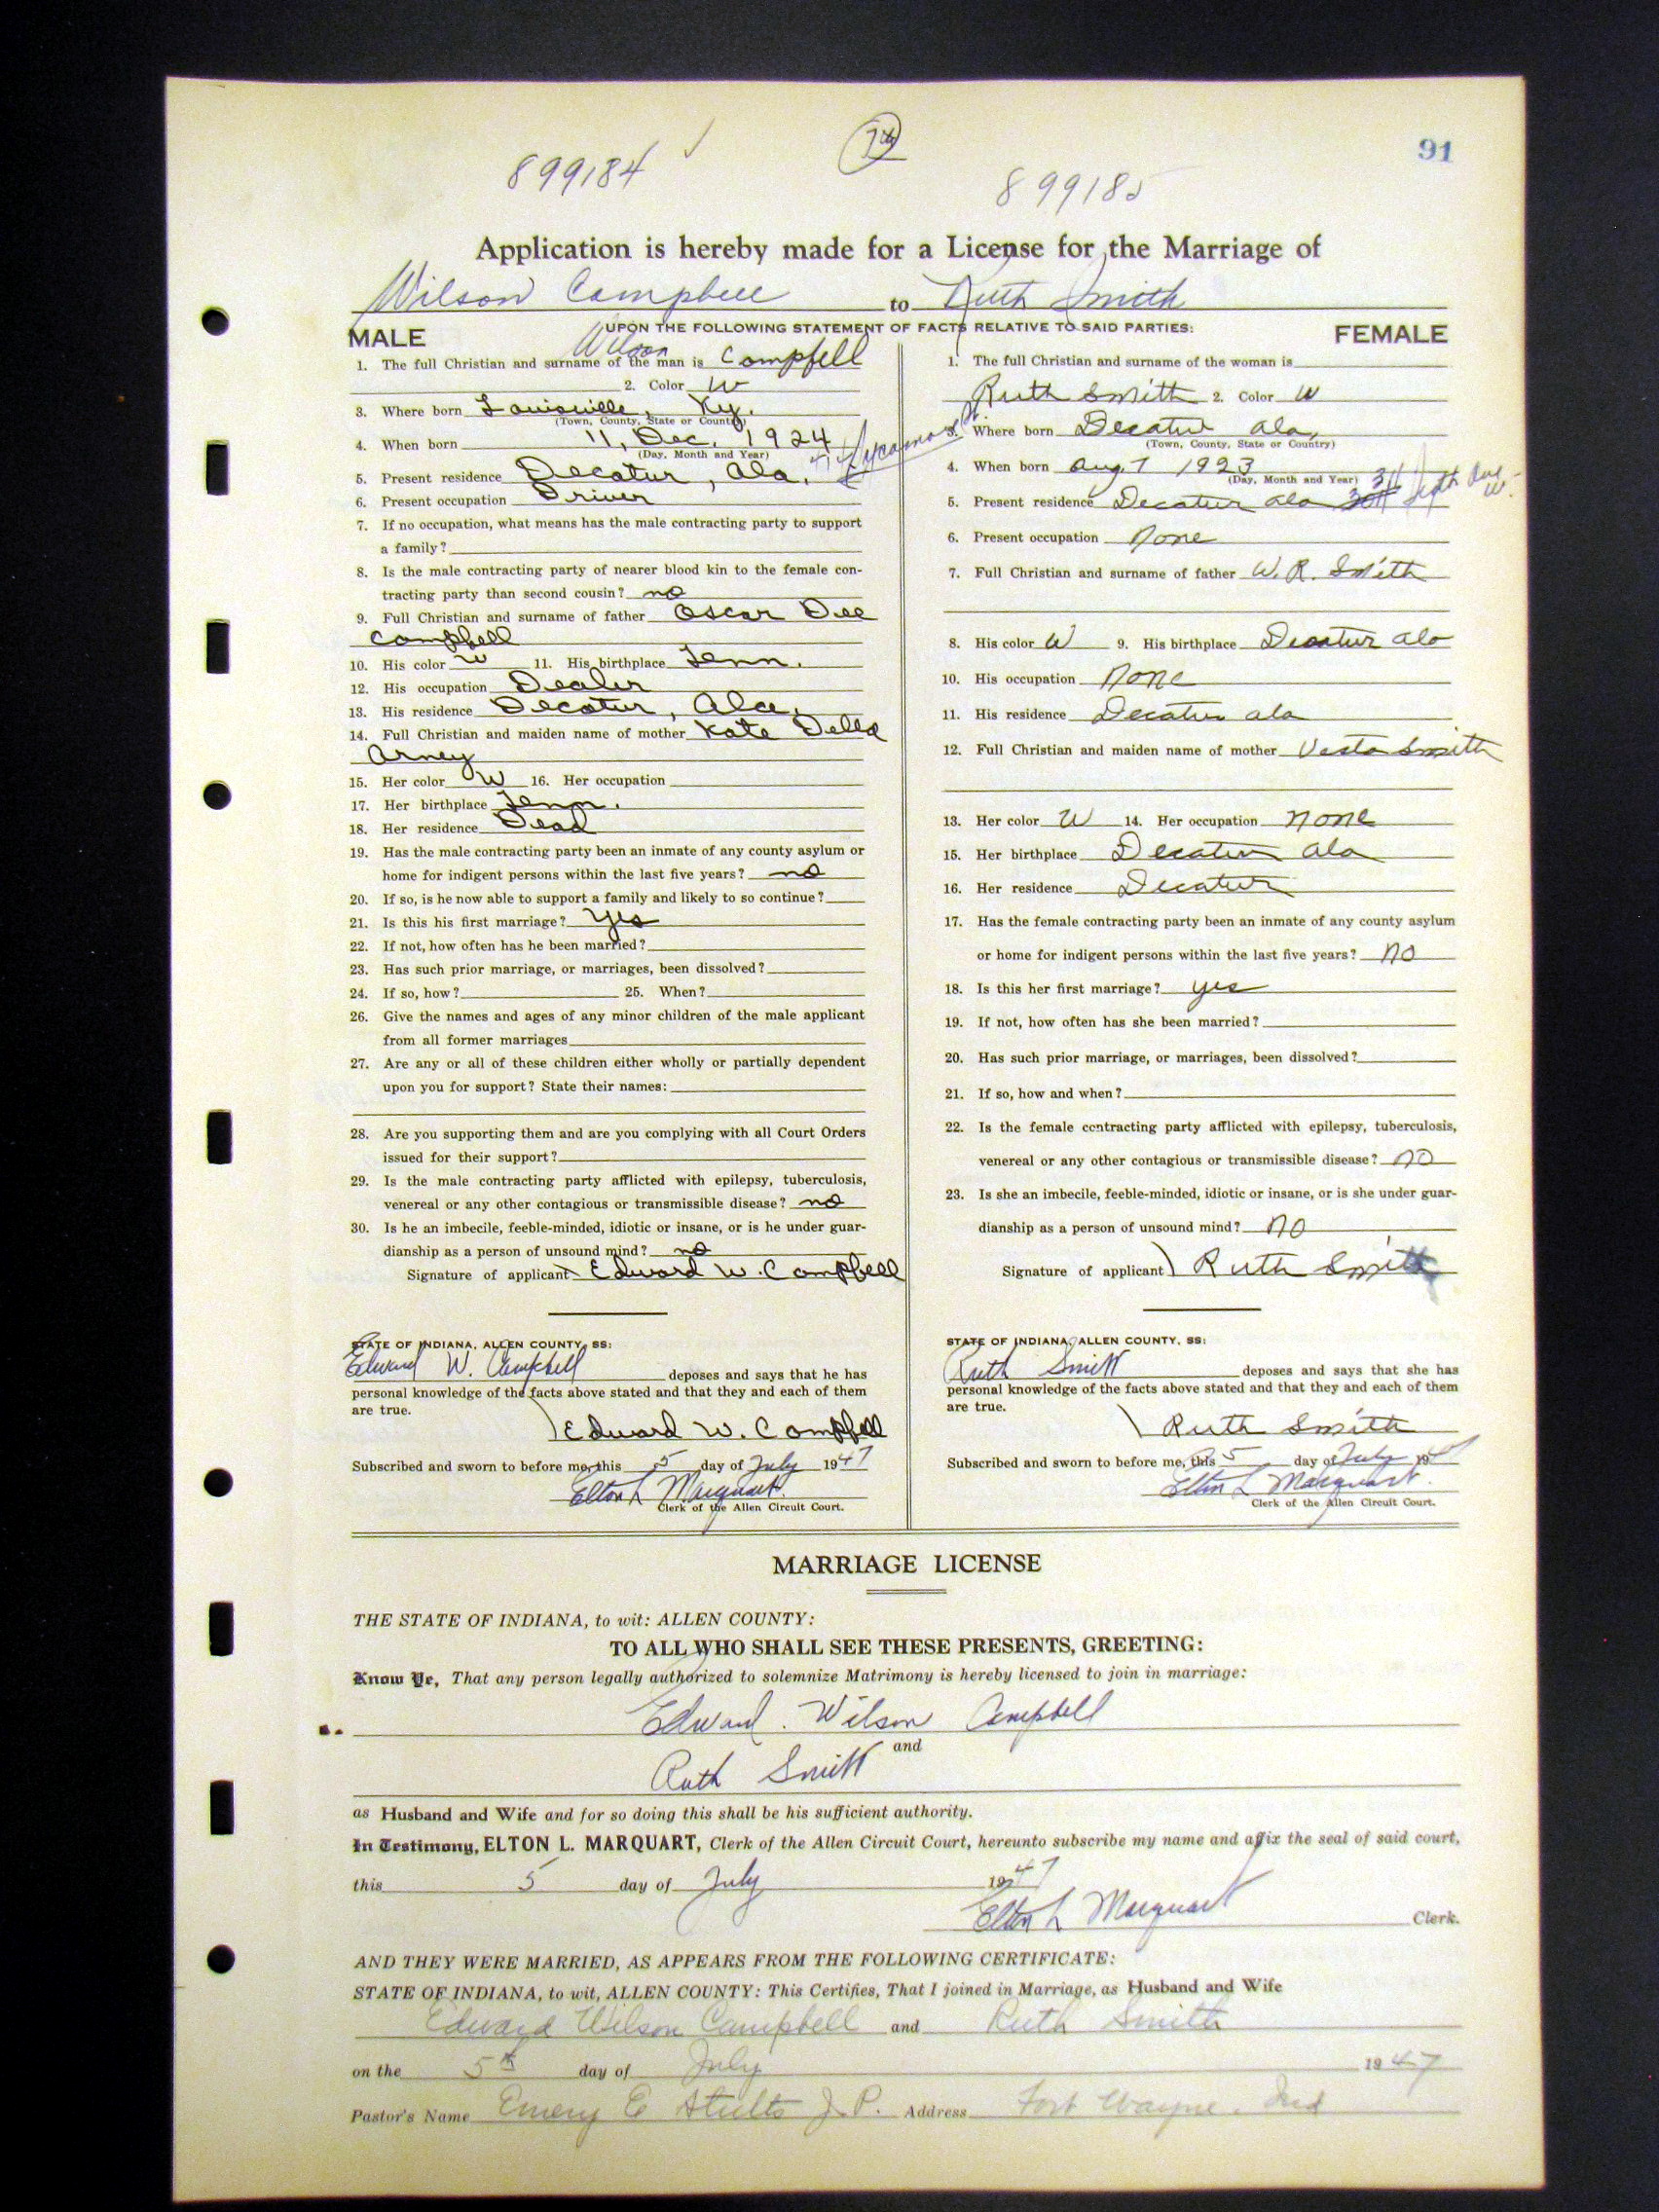 7th
91
899184
899185
Application is hereby made for a License for the Marriage of
Wilson Campbell to Ruth Smith
UPON THE FOLLOWING STATEMENT OF FACTS RELATIVE TO SAID PARTIES:
MALE
1. The full Christian and surname of the man is Wilson Campbell
2. Color W
3. Where born Louisville, Ky.
(Town, County, State or Country)
4. When born 11, Dec. 1924
(Day, Month and Year)
5. Present residence Decatur, Ala. Sycamore St.
6. Present occupation Driver
7. If no occupation, what means has the male contracting party to support
a family?
8. Is the male contracting party of nearer blood kin to the female con-
tracting party than second cousin? no
9. Full Christian and surname of father Oscar Dee
Campbell
10. His color W 11. His birthplace Tenn.
12. His occupation Dealer
13. His residence Decatur, Ala.
14. Full Christian and maiden name of mother Kate Della
Arney
15. Her color W 16. Her occupation
17. Her birthplace Tenn.
18. Her residence Dead
19. Has the male contracting party been an inmate of any county asylum or
home for indigent persons within the last five years? no
20. If so, is he now able to support a family and likely to so continue?
21. Is this his first marriage? Yes
22. If not, how often has he been married?
23. Has such prior marriage, or marriages, been dissolved?
24. If so, how? 25. When?
26. Give the names and ages of any minor children of the male applicant
from all former marriages
27. Are any or all of these children either wholly or partially dependent
upon you for support? State their names:
28. Are you supporting them and are you complying with all Court Orders
issued for their support?
29. Is the male contracting party afflicted with epilepsy, tuberculosis,
venereal or any other contagious or transmissible disease? no
30. Is he an imbecile, feeble-minded, idiotic or insane, or is he under guar-
dianship as a person of unsound mind? no
Signature of applicant Edward W. Campbell
STATE OF INDIANA, ALLEN COUNTY, SS:
Edward W. Campbell deposes and says that he has
personal knowledge of the facts above stated and that they and each of them
are true.
Edward W. Campbell
Subscribed and sworn to before me, this 5 day of July 1947
Elton L Marquart
Clerk of the Allen Circuit Court.
FEMALE
1. The full Christian and surname of the woman is
Ruth Smith 2. Color W
3. Where born Decatur Ala,
(Town, County, State or Country)
4. When born Aug. 7 1923
(Day, Month and Year)
5. Present residence Decatur Ala 311 Sixth Ave W.
6. Present occupation None
7. Full Christian and surname of father W. R. Smith
8. His color W 9. His birthplace Decatur Ala
10. His occupation None
11. His residence Decatur Ala
12. Full Christian and maiden name of mother Vesta Smith
13. Her color W 14. Her occupation None
15. Her birthplace Decatur Ala
16. Her residence Decatur
17. Has the female contracting party been an inmate of any county asylum
or home for indigent persons within the last five years? NO
18. Is this her first marriage? yes
19. If not, how often has she been married?
20. Has such prior marriage, or marriages, been dissolved?
21. If so, how and when?
22. Is the female contracting party afflicted with epilepsy, tuberculosis,
venereal or any other contagious or transmissible disease? NO
23. Is she an imbecile, feeble-minded, idiotic or insane, or is she under guar-
dianship as a person of unsound mind? NO
Signature of applicant Ruth Smith
STATE OF INDIANA, ALLEN COUNTY, SS:
Ruth Smith deposes and says that she has
personal knowledge of the facts above stated and that they and each of them
are true.
Ruth Smith
Subscribed and sworn to before me, this 5 day of July 1947
Elton L Marquart
Clerk of the Allen Circuit Court.
MARRIAGE LICENSE
THE STATE OF INDIANA, to wit: ALLEN COUNTY:
TO ALL WHO SHALL SEE THESE PRESENTS, GREETING:
Know Ye, That any person legally authorized to solemnize Matrimony is hereby licensed to join in marriage:
Edward Wilson Campbell
and
Ruth Smith
as Husband and Wife and for so doing this shall be his sufficient authority.
In Testimony, ELTON L. MARQUART, Clerk of the Allen Circuit Court, hereunto subscribe my name and affix the seal of said court,
this 5 day of July 1947
Elton L Marquart Clerk.
AND THEY WERE MARRIED, AS APPEARS FROM THE FOLLOWING CERTIFICATE:
STATE OF INDIANA, to wit, ALLEN COUNTY: This Certifies, That I joined in Marriage, as Husband and Wife
Edward Wilson Campbell and Ruth Smith
on the 5th day of July 1947
Pastor's Name Emery E Stults J. P. Address Fort Wayne, Ind